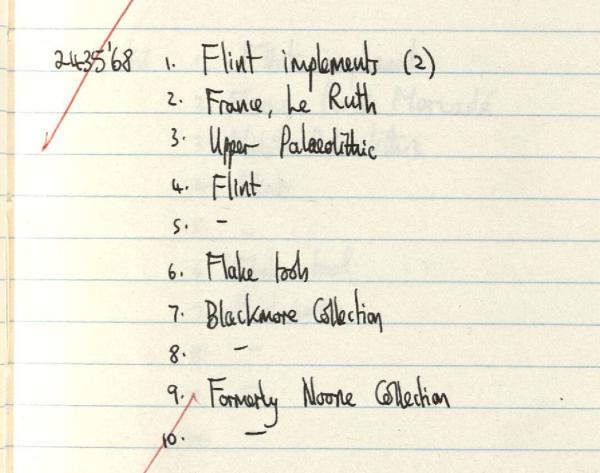 2435'68 1. Flint implements (2)
2. France, Le Ruth
3. Upper Palaeolithic
4. Flint
5. -
6. Flake tools
7. Blackmore Collection
8. -
9. Formerly Noone Collection
10. -